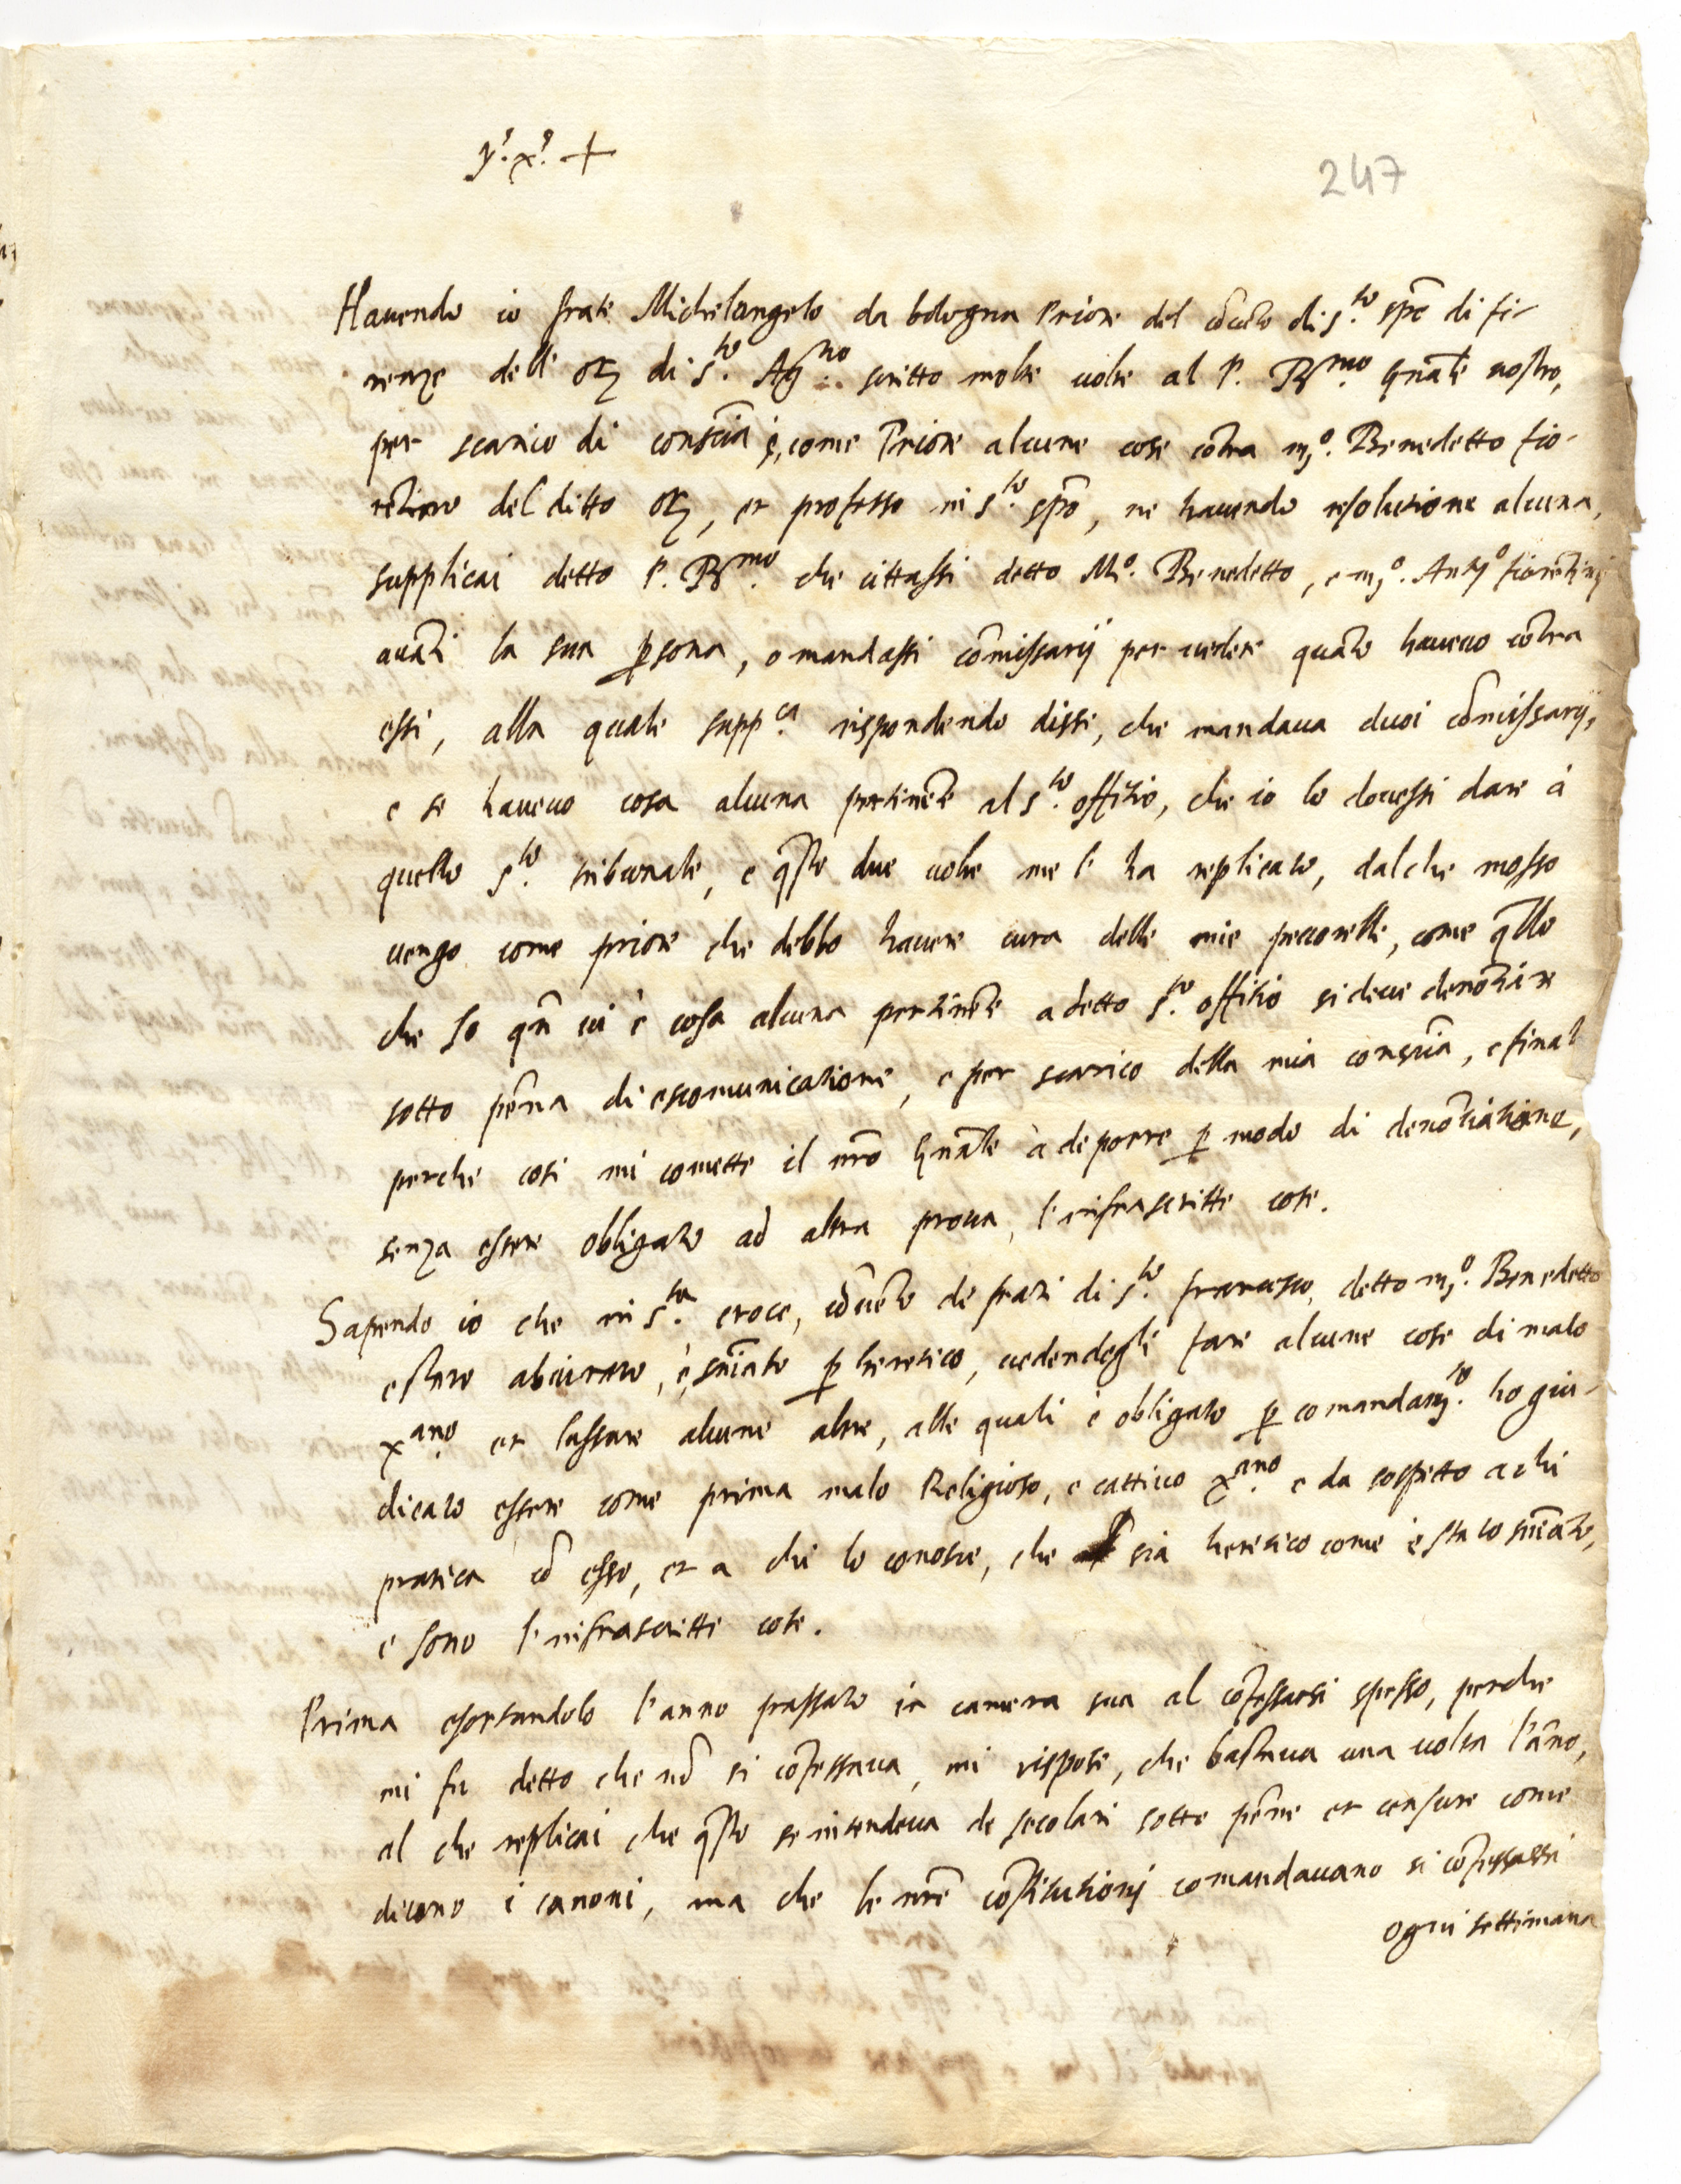 y.s x.s +
247
Hauendo io frate Michelangelo da bologna Priore del cōuēto di s.to spō di fi-
renze dell' orē di s.to Ag.no scritto molte uolte al P. R.mo gnāle nostro,
per scarico di consciā e, come Priore alcune cose cōtra m.o Benedetto fio-
rētino del ditto orē, et professo in s.to spō, ne hauendo resolutione alcuna,
supplicai detto P. R.mo che cittassi detto M.o Benedetto, e m.o Antº fiorētinj
auāti la sua psona, o mandassi cōmissarij per uedere quāto haueuo cōtra
essi, alla quale supp.ca rispondendo disse, che mandaua duoi cōmissarij,
e se haueuo cosa alcuna pertinēte al s.to offitio, che io lo douessi dare à
quello s.to tribunale, e q̄sto due uolte me l' ha replicato, dalche mosso
uengo come priore che debbo hauere cura delle mie peccorelle, come q̄llo
che so qn̄ ui è cosa alcuna pertinēte a detto s.to offitio si deue denōtiare
sotto pēna di escomunicatione, e per scarico della mia consciā, e final
perche cosi mi comette il nrō gnāle à deporre p modo di denōtiatione,
senza essere obligato ad altra proua, l'infrascritte cose.
Sapendo io che in s.ta croce, cōuēto de frati di s.to francesco, detto m.o Benedetto
e stato abiurato, e snīato p heretico, uedendogli fare alcune cose di malo
x.ano et lassare alcune altre, alle quali è obligato p comandam.to ho giu-
dicato essere come prima malo Religioso, e cattiuo x.ano e da sospetto a chi
pratica cō esso, et a chi lo conosce, che sia heretico come è stato snīato,
e sono l'infrascritte cose.
Prima esortandolo l'anno passato in camera sua al cōfessarsi spesso, perche
mi fu detto che nō si cōfessaua, mi rispose, che bastaua una uolta l'āno,
al che replicai che q̄sto se intendeua de secolari sotto pēne et censure come
dicono i canoni, ma che le nrē cōstitutionj comandauano si cōfessassi
ogni settimana